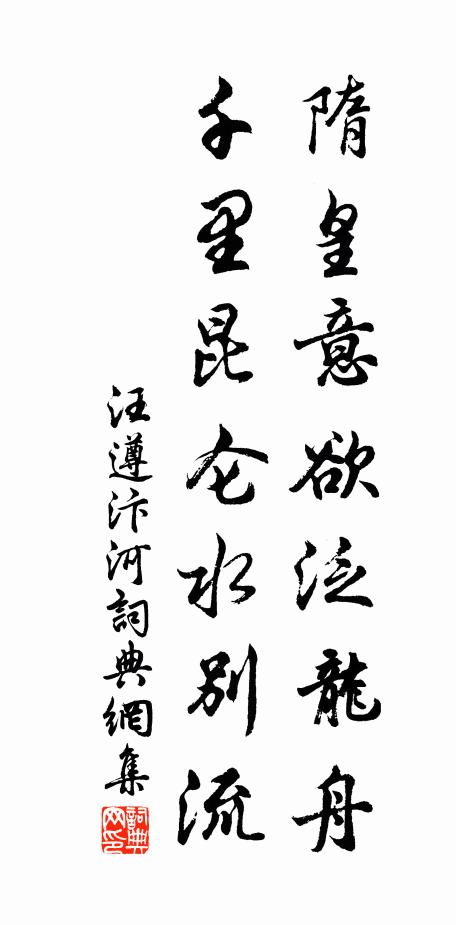 隋皇意欲泛龍舟
千里昆仑水別流
汪遵汴河詞典網集
詞典網印